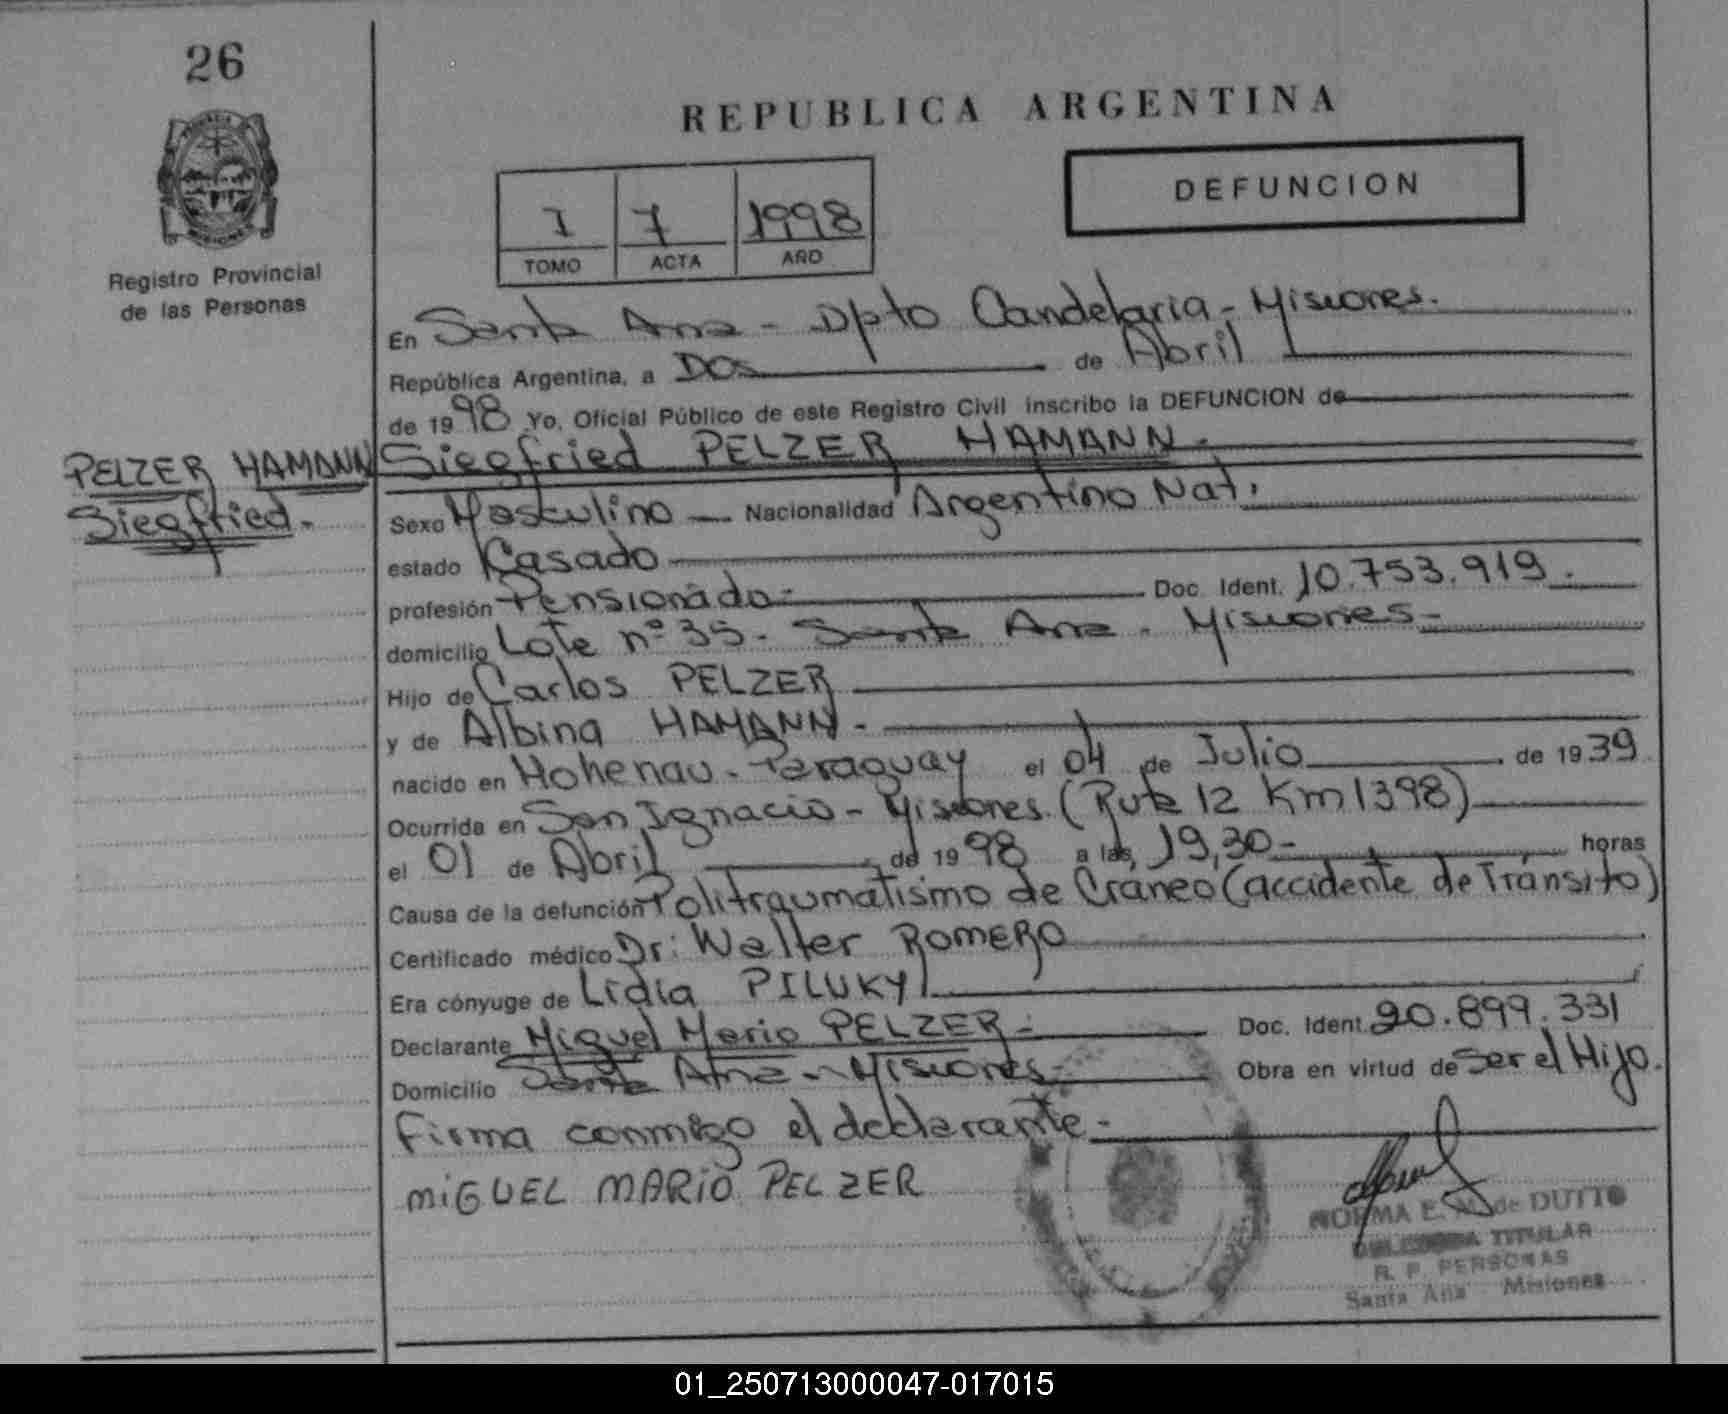 26
REPUBLICA ARGENTINA
1 7 1998
TOMO ACTA AÑO
DEFUNCION
Registro Provincial
de las Personas
En Santa Ana - Dpto Candelaria - Misiones.
República Argentina, a Dos de Abril
de 1998 Yo, Oficial Público de este Registro Civil inscribo la DEFUNCION de
PELZER HAMANN
Siegfried.
Siegfried PELZER HAMANN-
Sexo Masculino - Nacionalidad Argentino Nat.
estado Casado
profesión Pensionado- Doc. Ident. 10.753.919.
domicilio Lote nº 35- Santa Ana - Misiones-
Hijo de Carlos PELZER
y de Albina HAMANN-
nacido en Hohenau - Paraguay el 04 de Julio de 1939
Ocurrida en San Ignacio - Misiones. (Ruta 12 Km 1398)
el 01 de Abril de 1998 a las, 19,30- horas
Causa de la defunción Politraumatismo de Cráneo (accidente de Tránsito)
Certificado médico Dr: Walter ROMERO
Era cónyuge de Lidia PILUKY
Declarante Miguel Mario PELZER- Doc. Ident. 20.899.331
Domicilio Santa Ana - Misiones- Obra en virtud de Ser el Hijo.
Firma conmigo el declarante-
MIGUEL MARIO PELZER
NORMA E. M. de DUTTO
TITULAR
R. P. PERSONAS
Santa Ana - Misiones
01_250713000047-017015